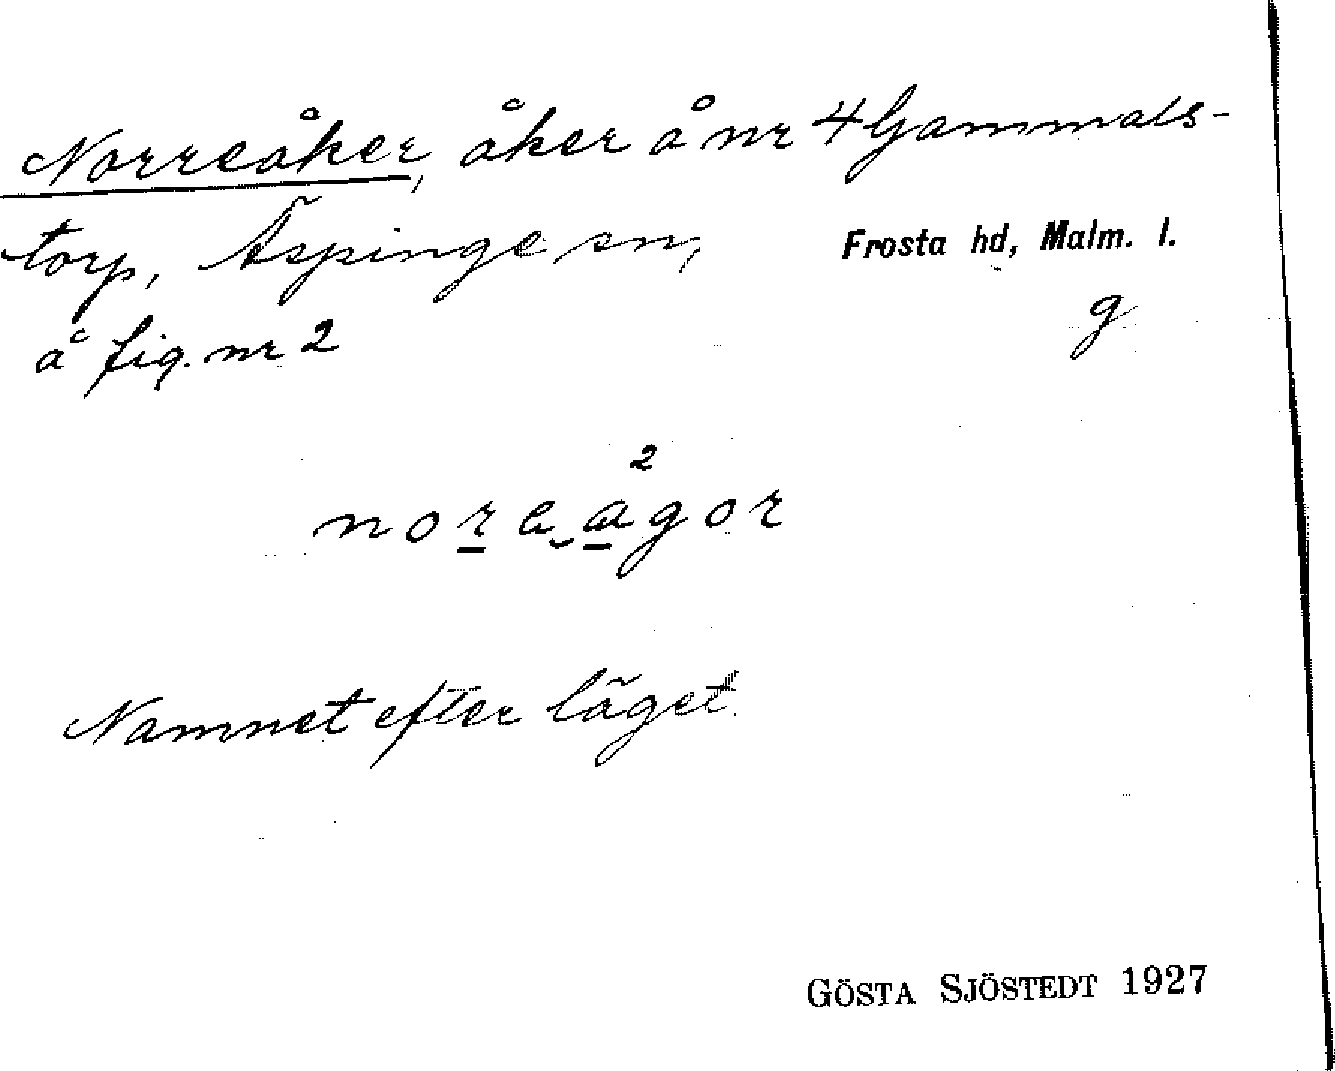 Norreåker, åker å nr 4 Gammals-
torp, Äspinge sn, Frosta hd, Malm. l.
å fig. nr 2
g
2
nora agor
Namnet efter läget.
GÖSTA SJÖSTEDT 1927